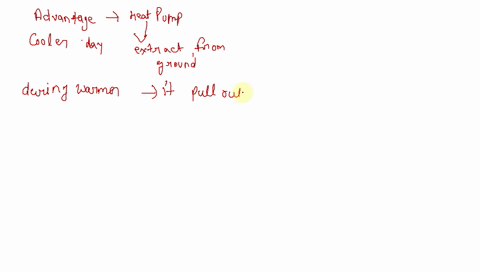 Advantage → Heat Pump
Cooler day extract from
ground
during warmer → it pull out